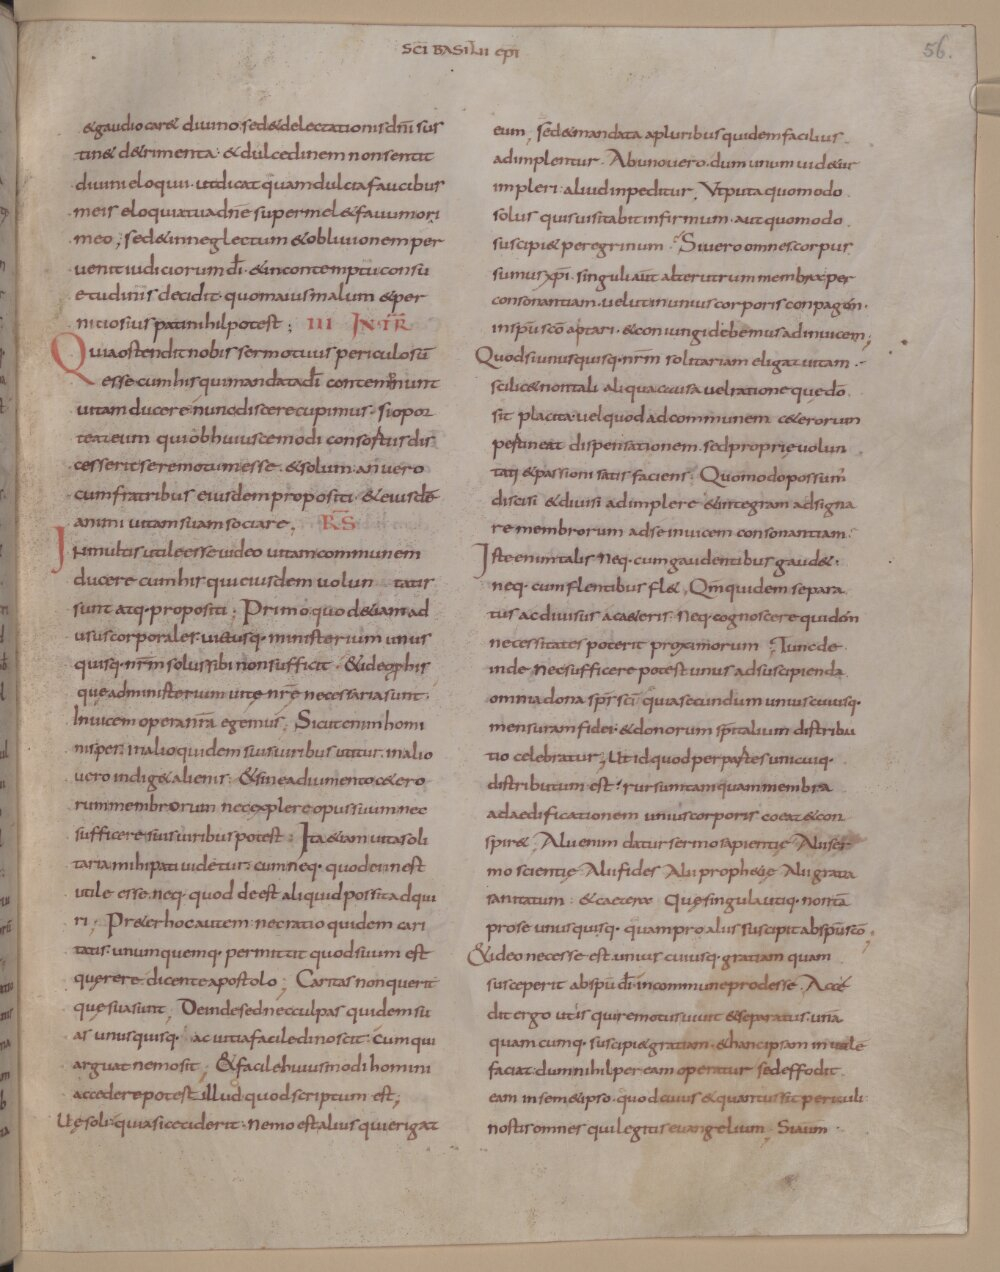 SC̄I BASILII EP̄I
56.
&gaudio car& diuino. sed&delectationis dn̄i sus
tin& d&rimenta. &dulcedinem non sentit
diuini eloquii. ut dicat quam dulcia faucibus
meis eloquia tua dn̄e super mel &fauum ori
meo; sed&inneglectum &obliuionem per
uenit iudiciorum dī. &incontemptū consu
etudinis decidit. quo maius malum &per
niciosius pati nihil potest; III INTR̄
Quia ostendit nobis sermo tuus periculosū
esse cum his qui mandata dī contemnunt
uitam ducere. nunc discere cupimus. si opor
teat eum qui ob huiuscemodi consortiis dis
cesserit seremotum esse. &solum. an uero
cum fratribus eiusdem propositi. &eiusdē
animi uitam suam sociare. R̄S
In multis utile esse uideo uitam communem
ducere cum his qui eiusdem uolun tatis
sunt atq· propositi; Primo quod &iam ad
usus corporales. uictusq· ministerium unus
quisq· nr̄m solus sibi non sufficit. &ideo p his
que ad ministerium uitę nr̄ę necessaria sunt.
Inuicem opera nr̄a egemus; Sicut enim homi
nis pes. in alio quidem suis uiribus utitur. in alio
uero indig& alienis. &sine adiumento c&ero
rum membrorum nec explere opus suum nec
sufficere suis uiribus potest; Ita &iam uita soli
taria mihi pati uidetur. cum neq· quod ei inest
utile esse. neq· quod deest aliquid possit adqui
ri; Pr&er hoc autem nec ratio quidem cari
tatis unumquemq· permittit quod suum est
querere. dicente apostolo; Caritas non querit
que sua sunt; Deinde sed nec culpas quidem su
as unusquisq· ac uitia facile dinoscit. cum qui
arguat nemo sit; &facile huiusmodi homini
accedere potest illud quod scriptum est;
Uę soli. quia si ceciderit. nemo est alius qui erigat
eum; sed &mandata a pluribus quidem facilius.
adimplentur. Ab uno uero. dum unum uid&ur
impleri. aliud inpeditur; Ut puta quomodo
solus quis uisitabit infirmum. aut quomodo
suscipi& peregrinum. Si uero omnes corpus
sumus xp̄i. singuli aūt alterutrum membra. per
consonantiam. uelut in unius corporis conpagem.
in spū scō aptari. &coniungi debemus ad inuicem;
Quod si unusquisq· nr̄m solitariam eligat uitam.
scilic& non tali aliqua causa uel ratione que dō
sit placita. uel quod ad communem c&erorum
pertineat dispensationem. sed proprie uolun
tati &passioni satis faciens; Quomodo possum̄
discisi &diuisi adimplere &integram adsigna
re membrorum ad se inuicem consonantiam.
Iste enim talis neq· cum gaudentibus gaud&.
neq· cum flentibus fl&; Qm̄ quidem separa
tus ac diuisus a c&eris. neq· cognoscere quidem
necessitates poterit proximorum; Tunc de
inde nec sufficere potest unus ad suscipienda
omnia dona spr̄s sc̄i. quia secundum uniuscuiusq·
mensuram fidei. &donorum sp̄italium distribu
tio celebratur; Ut id quod per partes unicuiq·
distributum est. rursum tamquam membra
ad aedificationem unius corporis coeat &con
spir&; Alii enim datur sermo sapientię. Alii ser
mo scientię. Alii fides. Alii proph&ię. Alii grata
sanitatum. &caetera. Que singula utiq· non tā
pro se unusquisq· quam pro aliis suscipit ab spū scō;
&ideo necesse est unius cuiusq· gratiam quam
susceperit ab spū dī in commune prodesse; Acce
dit ergo ut is qui remotus uiuit &separatus. unā
quam cumq· suscipi& gratiam. &hanc ipsam inutile
faciat. dum nihil per eam operatur. sed effodit
eam in sem&ipso. quod cuius &quantus sit periculi
nostis omnes qui legitis euangelium; Si aūm